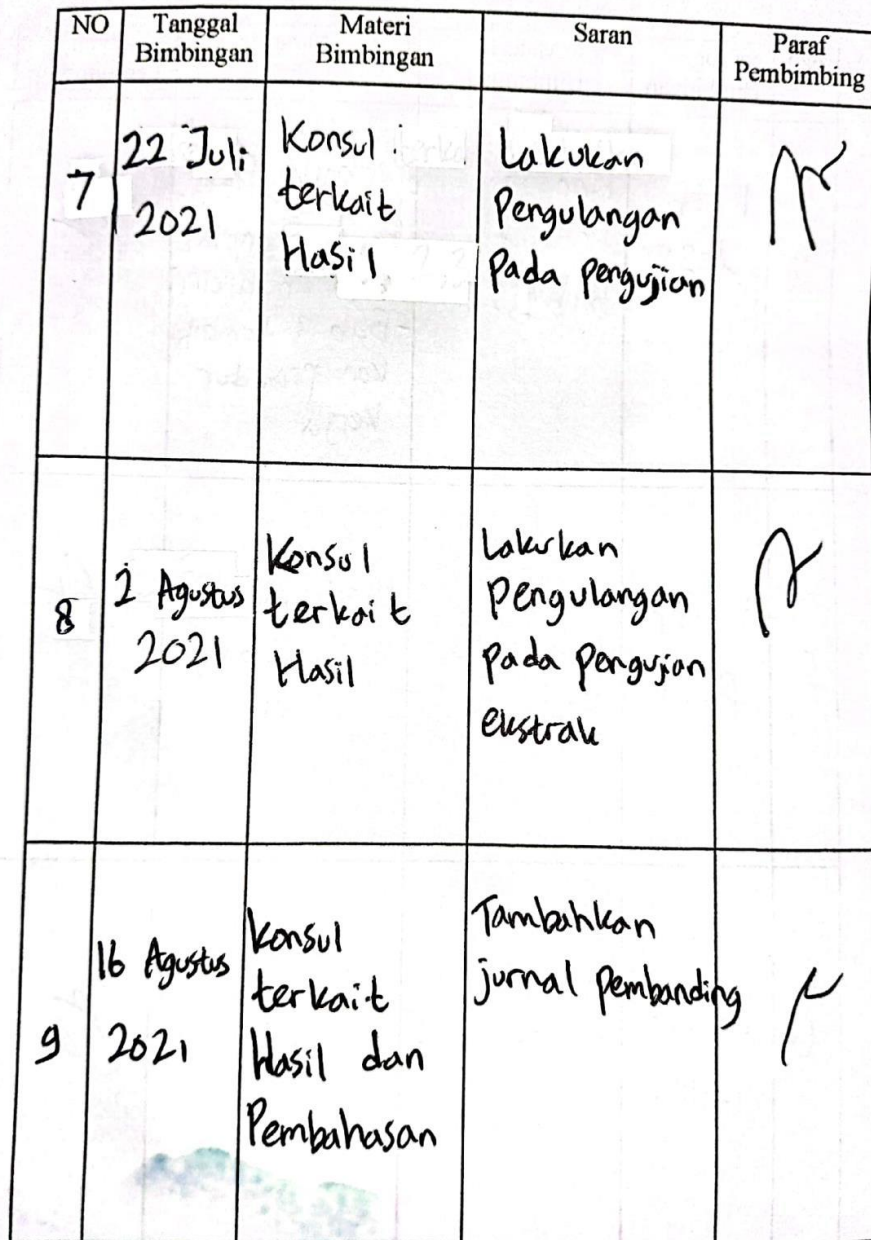 NO
Tanggal
Bimbingan
Materi
Bimbingan
Saran
Paraf
Pembimbing
7
22 Juli
2021
Konsul
terkait
Hasil
Lakukan
Pengulangan
Pada pengujian
8
2 Agustus
2021
Konsul
terkait
Hasil
Lakukan
Pengulangan
pada pengujian
ekstrak
9
16 Agustus
2021
Konsul
terkait
Hasil dan
Pembahasan
Tambahkan
jurnal Pembanding